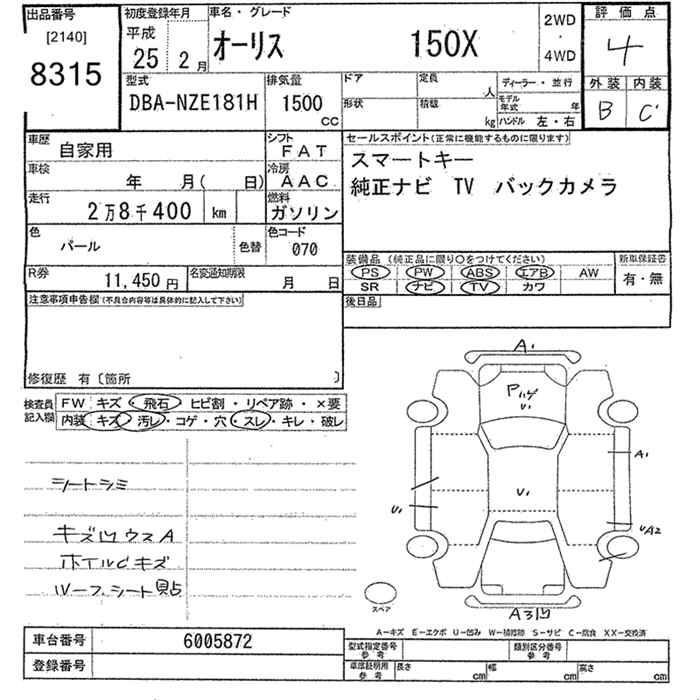 出品番号
[2140]
8315
初度登録年月
平成
25 2月
車名・グレード
オーリス 150X
2WD
・
4WD
評価点
4
外装 内装
B C
型式
DBA-NZE181H
排気量
1500
CC
ドア
定員
人
形状
積載
kg
ディーラー・並行
モデル年式 年
ハンドル 左・右
車歴
自家用
シフト
FAT
車検
年 月( 日)
冷房
AAC
走行
2万8千400 km
燃料
ガソリン
色
パール
色替
色コード
070
R券
11,450円
名変通知期限
月 日
セールスポイント(正常に機能するものに限ります)
スマートキー
純正ナビ TV バックカメラ
装備品(純正品に限り○をつけてください)
PS PW ABS エアB AW
SR ナビ TV カワ
新車保証書
有・無
後日品
注意事項申告欄(不具合内容等は具体的に記入して下さい)
修復歴 有〔箇所 〕
検査員記入欄
FW キズ・飛石・ヒビ割・リペア跡・×要
内装 キズ・汚レ・コゲ・穴・スレ・キレ・破レ
シートシミ
キズ凹ウスA
ホイルCキズ
ルーフ、シート貼
A1
Pハゲ
U1
A1
U1
U1
UA2
A3凹
スペア
A-キズ E-エクボ U-凹み W-補修跡 S-サビ C-腐食 XX-交換済
車台番号 6005872
登録番号
型式指定番号 参考
類別区分番号 参考
車庫証明用 参考
長さ cm
幅 cm
高さ cm